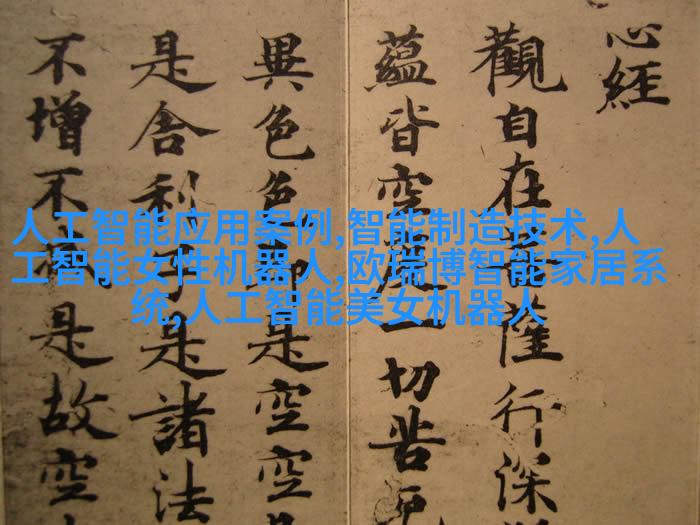 心經
觀自在薩行深
蘊皆空度一切苦厄
異色色即是空空
是舍利子是諸法
不增不減是故空
人工智能应用案例,智能制造技术,人
工智能女性机器人,欧瑞博智能家居系
统,人工智能美女机器人